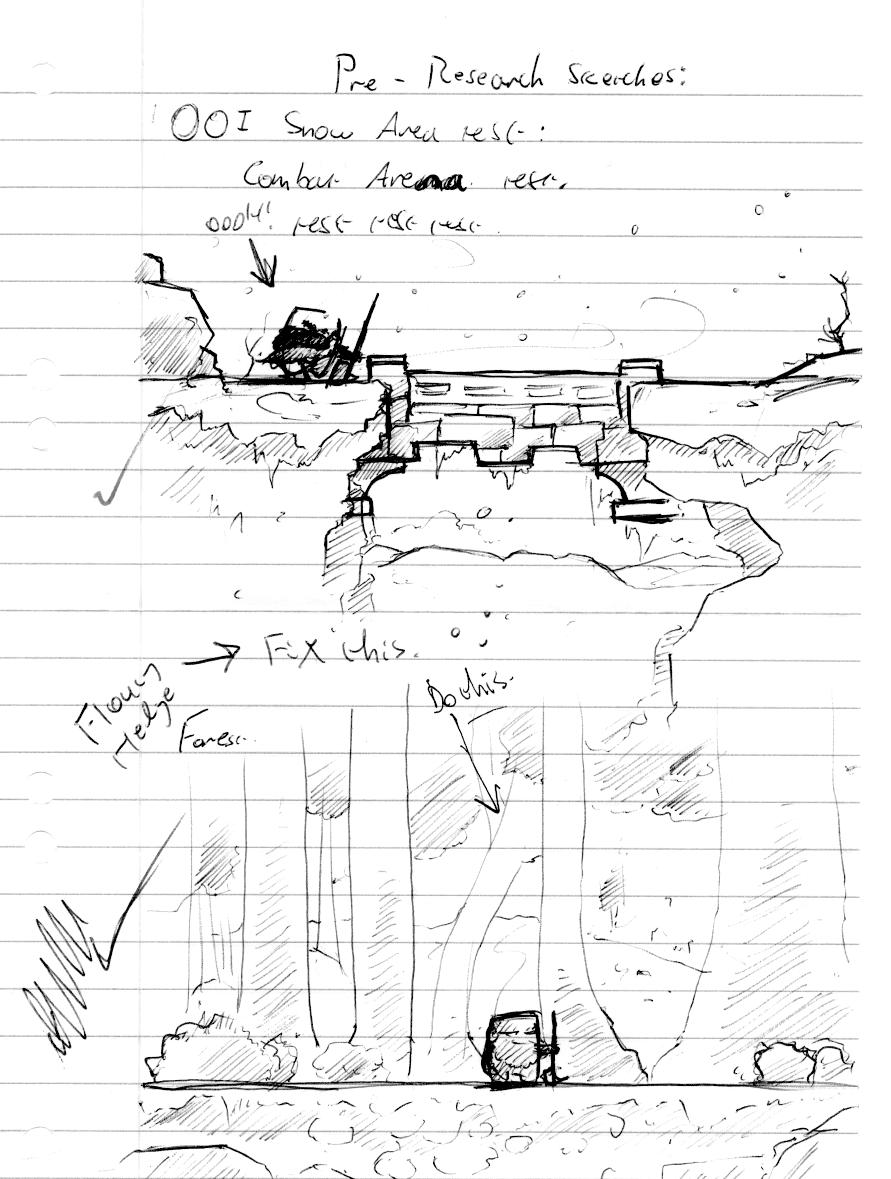 Pre - Research Scetches:
001 Snow Area test:
Combat Arena test.
oooh! test test test
Fix this.
Flowey
Hedge
Do this.
Forest.